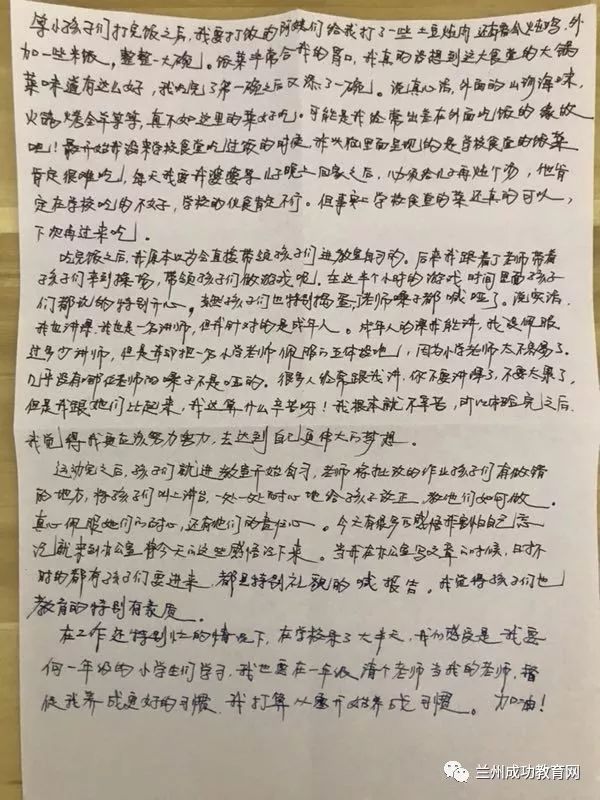 等小孩子们打完饭之后，我要打饭的阿姨们给我打了一些土豆炖肉，还有番令炖鸡，外
加一些米饭，整整一大碗。饭菜非常合我的胃口，我真的没想到这大食堂的大锅
菜味道有这么好，我吃完了第一碗之后又添了一碗。说真心话，外面的山珍海味，
火锅烧全羊等等，真不如这里的菜好吃。可能是我经常出差在外面吃饭的缘故
吧！最开始我没来学校食堂吃过饭的时候，我头脑里面呈现的是学校食堂的饭菜
肯定很难吃，每天我要我婆婆等儿子晚上回家之后，必须给儿子再炖个汤，他肯
定在学校吃的不好，学校的伙食肯定不行。但事实上学校食堂的菜还真的可以，
下次再过来吃。
吃完饭之后，我原本以为会直接带领孩子们进教室自习的。后来我跟着丁老师带着
孩子们来到操场，带领孩子们做游戏呢。在这半个小时的游戏时间里面孩子
们都玩的特别开心，孩子们也特别捣蛋，老师嗓子都喊哑了。说实话，
我也讲课，我也是一名讲师，但我针对的是成年人。成年人的课我能讲，我没佩服
过多少讲师，但是我却把一名小学老师佩服的五体投地，因为小学老师太不容易了。
几乎没有哪位老师的嗓子不是哑的。很多人经常跟我讲，你不要讲课了，不要太累了，
但是我跟她们比起来，我这算什么辛苦呀！我根本就不辛苦，所以体验完之后，
我觉得我更应该努力努力，去达到自己更伟大的梦想。
运动完之后，孩子们就进教室开始自习，老师将批改的作业孩子们有做错
的地方，将孩子们叫上讲台，一处一处耐心地给孩子改正，教他们如何做。
真心佩服她们的耐心，还有她们的责任心。今天有很多的感悟我害怕自己忘
记就来到办公室将今天的这些感悟记下来。当我在办公室写文章的时候，时不
时的都有孩子们要进来，都是特别礼貌的喊报告。我觉得孩子们也
教育的特别有素质。
在工作还特别忙的情况下，在学校呆了大半天，我的感受是我要
向一年级的小学生们学习，我也要在一年级请个老师当我的老师，督
促我养成更好的习惯，我打算从重开始养成习惯。加油！
兰州成功教育网